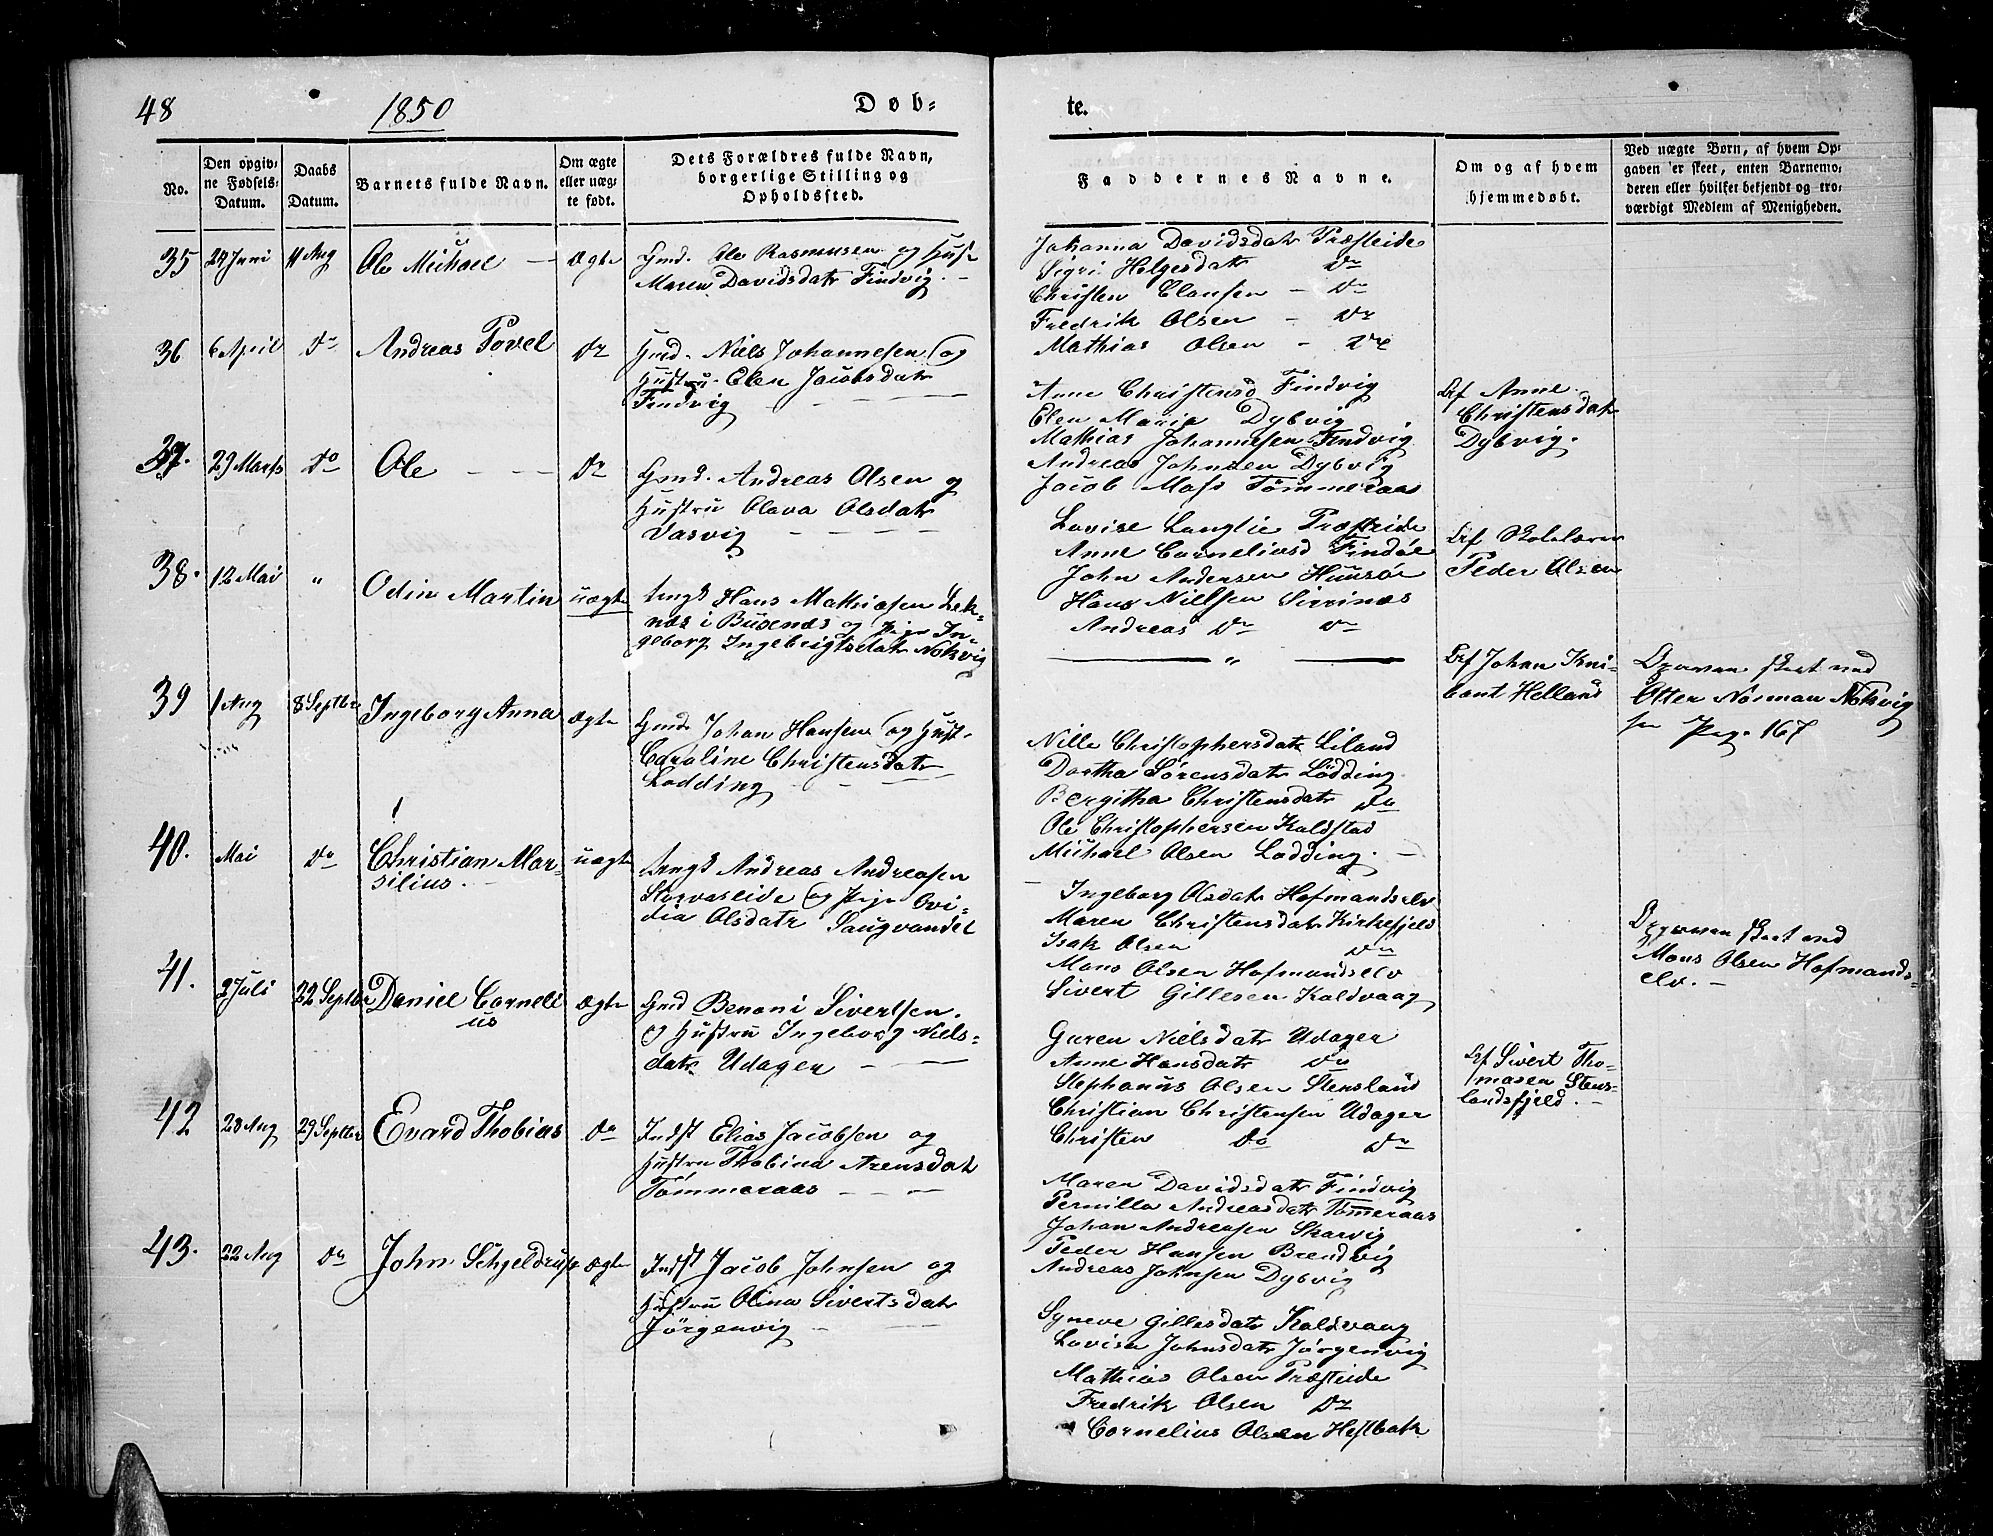 48
1850
Døb-
te.
No.
Den opgiv-
ne Fødsels-
Datum.
Daabs
Datum.
Barnets fulde Navn.
Om ægte
eller uæg-
te født.
Dets Forældres fulde Navn,
borgerlige Stilling og
Opholdssted.
Faddernes Navne.
Om og af hvem
hjemmedøbt.
Ved uægte Børn, af hvem Op-
gaven er skeet, enten Barnemo-
deren eller hvilket bekjendt og tro-
værdigt Medlem af Menigheden.
35 29 Juni 11 Aug Ole Michael ægte Gmd. Ole Rasmussen og Hust
Maren Davidsdatr Findvig
Johanna Davidsdatr Præsteide
Sigri Helgesdatr Do
Christen Clausen Do
Fredrik Olsen Do
Mathias Olsen Do
36 6 April Do Andreas Povel Do Gmd. Niels Johannesen og
Hustru Elen Jacobsdatr
Findvig
Anne Christensd Findvig
Elen Marie Dybvig
Mathias Johannesen Findvig
Andreas Johnsen Dybvig
Jacob Tømmeraas
Anne
Christensdatr
Dybvig.
37. 29 Marts Do Ole Do Gmd. Andreas Olsen og
Hustru Olava Olsdatr
Vasvig
Lovise Langlie Præsteide
Anne Corneliusd Findøe
John Andersen Huusør
Hans Nielsen Sirrinæs
Andreas Do Do
Skolelærer
Peder Olsen
38. 12 Mai " Odin Martin uægte Ungk Hans Mathiasen Lek-
næs i Buxnæs og Pige In-
geborg Ingebrigtsdatr Nokvig
"
Johan Kni-
Helland
Opgaven skeet ved
Otter Norman Nokvig
Pag. 167
39 1 Aug 8 Septbr Ingeborg Anna ægte Gmd. Johan Hansen og Hust.
Caroline Christensdatr
Lødding
Nille Christophersdatr Liland
Dorthea Sørensdatr Lødding
Bergitha Christensdatr Do
Ole Christophersen Kaldstad
Michael Olsen Lødding.
40. Mai Do Christian Mar-
silius. uægte Ungk Andreas Andreasen
Storvaseide og Pige Ovi-
dia Olsdatr Laugvandet
Ingeborg Olsdatr Hofmandselv
Maren Christensdatr Kirkefjeld
Isak Olsen Do
Mons Olsen Hofmandselv
Sivert Gillesen Kaldvaag
Opgaven skeet ved
Mons Olsen Hofmands-
elv.
41. 2 Juli 22 Septbr Daniel Corneli
us ægte Gmd Benoni Sivertsen.
og Hustru Ingeborg Niels-
datr Udager
Guren Nielsdatr Udager
Anne Hansdatr Do
Stephanus Olsen Stensland
Christian Christensen Udager
Christen Do Do
Sivert Tho-
masen Stens-
landsfjeld.
42 28 Aug 29 Septbr Evard Thobias Do Indst Elias Jacobsen og
Hustru Thobina Arensdatr
Tømmeraas
Maren Davidsdatr Findvig
Pernilla Andreasdatr Tømeraas
Johan Andreasen Skarvig
Peder Hansen Brendvig
Andreas Johnsen Dybvig
43. 22 Aug Do John Schjeldrup ægte Indst Jacob Johnsen og
Hustru Olina Sivertsdatr
Jörgenvig
Syneve Gillesdatr Kaldvaag
Lovise Johnsdatr Jörgenvig
Mathias Olsen Præsteide
Fredrik Olsen Do
Cornelius Olsen Hestbak